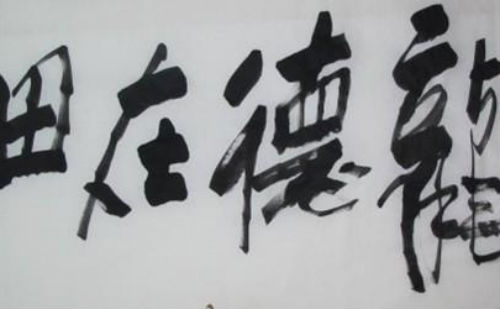 龍德在田